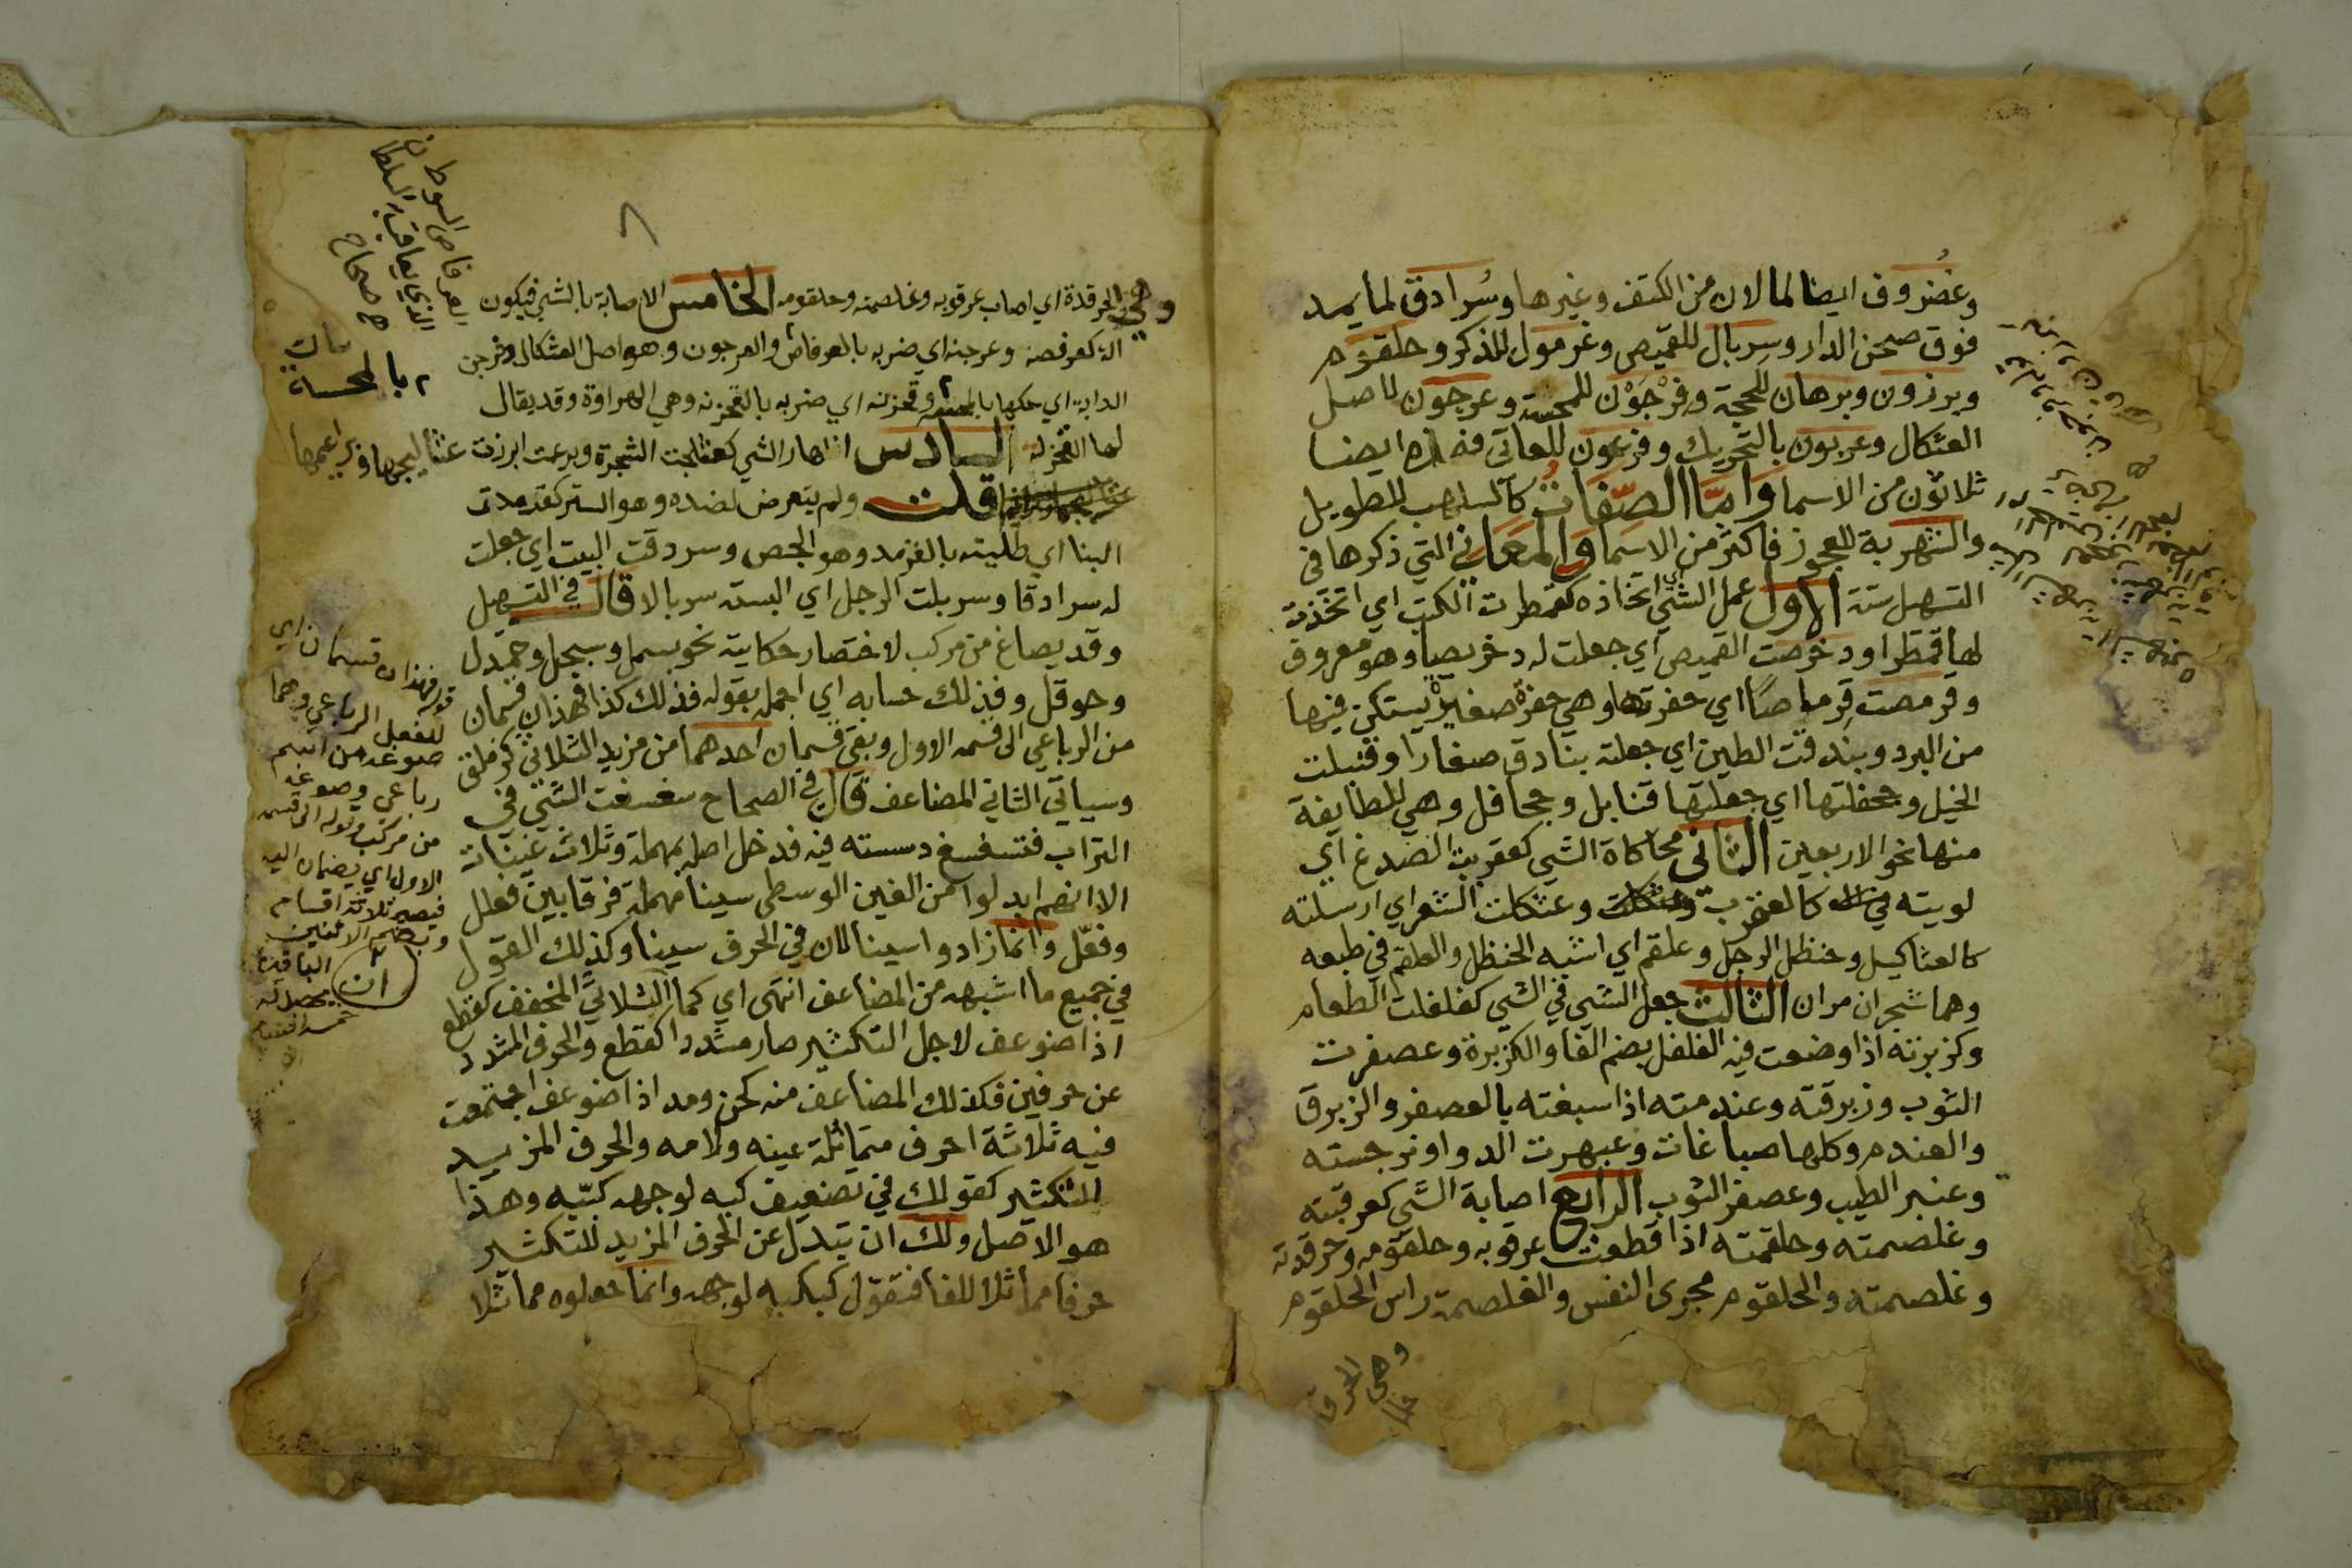 وغضروف ايضا لما لان من الكتف وغيرها وسُرادق لما يمد
فوق صحن الدار وسربال للقميص وغرمول للذكر وحلقوم
وبرذون وبرهان للحجة وفرْجَوْن للمحسة وعرجون لاصل
العثكال وعربون بالتحريك وفرعون للعاتي فهذه ايضا
ثلاثون من الاسما وامّا الصّفاتُ كالسلهب للطويل
والشهربة للعجوز فاكثر من الاسما والمعاني التي ذكرها في
التسهيل ستة الاول عمل الشي اي اتخاذه كقمطرت الكتب اي اتخذت
لها قمطرا ودخرصت القميص اي جعلت له دخريصا وهو معروف
وقرمصت قِرماصًا اي حفرتها وهي حفرة صغيرة يستكن فيها
من البرد وبندقت الطين اي جعلته بنادق صغارا وقنبلت
الخيل وجحفلتها اي جعلتها قنابل وجحافل وهي للطايفة
منها نحو الاربعين الثاني محاكاة الشي كعقربت الصدغ اي
لويته كالعقرب وعثكلت الشعر اي ارسلته
كالعثاكيل وحنظل الرجل وعلقم اي اشبه الحنظل والعلقم في طبعه
وهما شجران مران الثالث جعل الشي في الشي كفلفلت الطعام
وكزبرته اذا وضعت فيه الفلفل بضم الفا والكزبرة وعصفرت
الثوب وزبرقته وعندمته اذا صبغته بالعصفر والزبرق
والعندم وكلها صباغات وعبهرت الدوا ونرجسته
وعنبر الطيب وعصفر الثوب الرابع اصابة الشي كعرقبته
وغلصمته وحلقمته اذا قطعت عرقوبه وحلقومه وحرقدته
وغلصمته والحلقوم مجرى النفس والغلصمة راس الحلقوم
وهي الحرقدة
وهي الحرقدة اي اصاب عرقوبه وغلصمته وحلقومه الخامس الاصابة بالشي فيكون
الة كعرفصه وعرجنه اي ضربه بالعرفاص والعرجون وهو اصل العثكال وفرجن
الدابة اي حكها بالمحسة وقحزنه اي ضربه بالقحزنه وهي الهراوة وقد يقال
لها القحزلة السادس اظهار الشي كعثلجت الشجرة وبرعمت ابرزت
قلت ولم يتعرض لضده وهو الستر كقرمدت
البنا اي طليته بالقرمد وهو الجص وسردقت البيت اي جعلت
له سرادقا وسربلت الرجل اي البسته سربالا قال في التسهيل
وقد يصاغ من مركب لاختصار حكايته نحو بسمل وسبحل وحمدل
وحوقل وفذلك حسابه اي اجمله بقوله فذلك كذا فهذان قسمان
من الرباعي الى قسمه الاول وبقي قسمان احدهما من مزيد الثلاثي كزملق
وسياتي الثاني المضاعف قال في الصحاح سغسغت الشي في
التراب فتسغسغ دسسته فيه فدخل اصله بمهملة وثلاث غينات
الا انهم ابدلوا من الغين الوسطى سينا مهملة فرقا بين فعلل
وفعّل وانما زادوا سينا لان في الحرف سينا وكذلك القول
في جميع ما اشبهه من المضاعف انتهى اي كما الثلاثي المخفف كقطع
اذا ضوعف لاجل التكثير صار مشددا كقطع والحرف المشدد
عن حرفين فكذلك المضاعف منه كحن ومد اذا ضوعف اجتمعت
فيه ثلاثة احرف متماثلة عينه ولامه والحرف المزيد
للتكثير كقولك في تضعيف كبه لوجهه كبّبه وهذا
هو الاصل ولك ان تبدل عن الحرف المزيد للتكثير
حرفا مماثلا للفا فتقول كبكبه لوجهه وانما جعلوه مماثلا
العرفاص السوط
الذي يعاقب به السلطان
صحاح
بالمحسة
قوله فهذان قسمان اي
للفعل الرباعي وهما
صوغه من اسم
رباعي وصوغه
من مركب وقوله الى قسمه
الاول اي يضمان اليه
فيصير ثلاثة اقسام
الباقيان